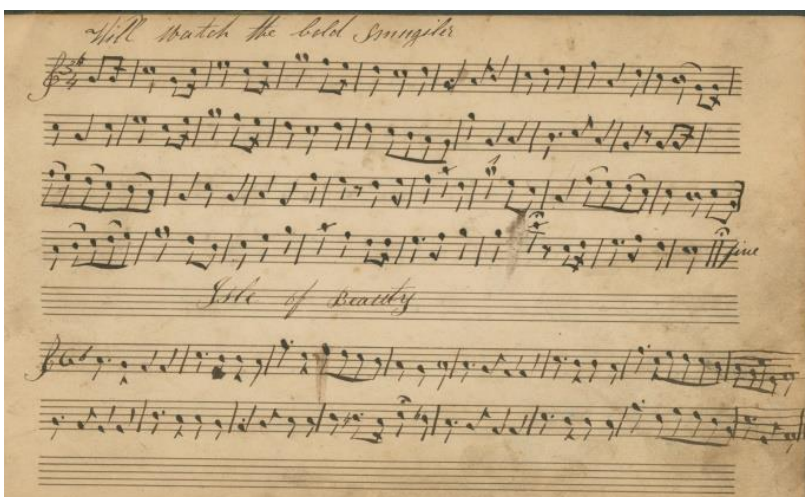 Will watch the bold Smugiler
3
4
fine
Isle of Beauty